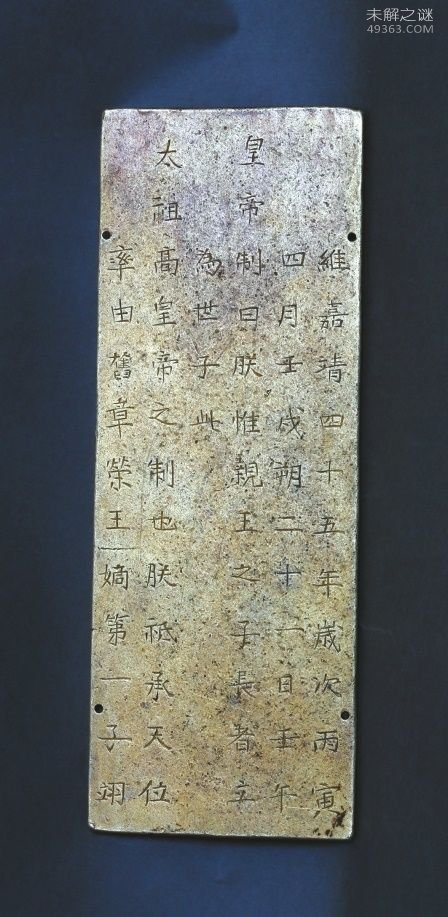 未解之谜
49363.COM
維嘉靖四十五年歲次丙寅
四月壬戌朔二十一日壬午
皇帝制曰朕惟親王之子長者立
為世子此
太祖高皇帝之制也朕祗承天位
率由舊章榮王嫡第一子翊